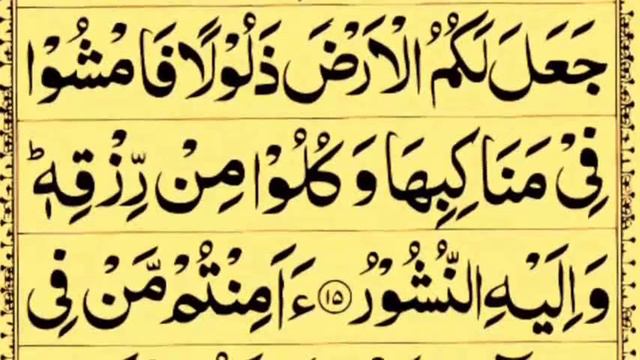 جَعَلَ لَكُمُ الْاَرْضَ ذَلُوْلًا فَامْشُوْا
فِیْ مَنَاكِبِهَا وَ كُلُوْا مِنْ رِّزْقِهٖ ؕ
وَ اِلَیْهِ النُّشُوْرُ ۝۱۵ ءَاَمِنْتُمْ مَّنْ فِی